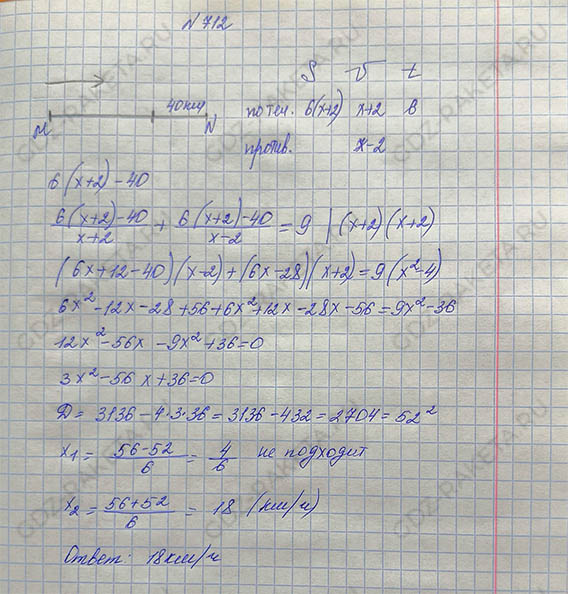 N 712
S v t
40 км
M N
по теч. 6(x+2) x+2 6
против. x-2
6(x+2)-40
6(x+2)-40/x+2 + 6(x+2)-40/x-2 = 9 | (x+2)(x+2)
(6x+12-40)(x-2)+(6x-28)(x+2)=9(x²-4)
6x²-12x-28+56+6x²+12x-28x-56=9x²-36
12x²-56x-9x²+36=0
3x²-56x+36=0
D= 3136-4·3·36=3136-432=2704=52²
x1= 56-52/6 = 4/6 не подходит
x2= 56+52/6 = 18 (км/ч)
Ответ: 18км/ч
GDZ-RAKETA.RU